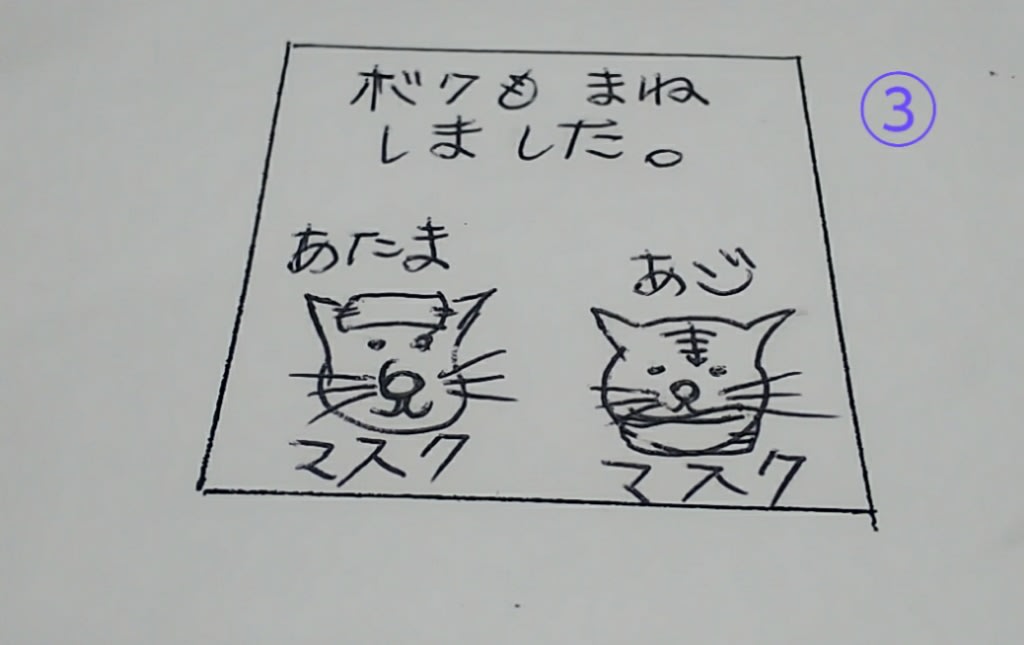 ボクもまね
しました。
③
あたま
あご
マスク
マスク